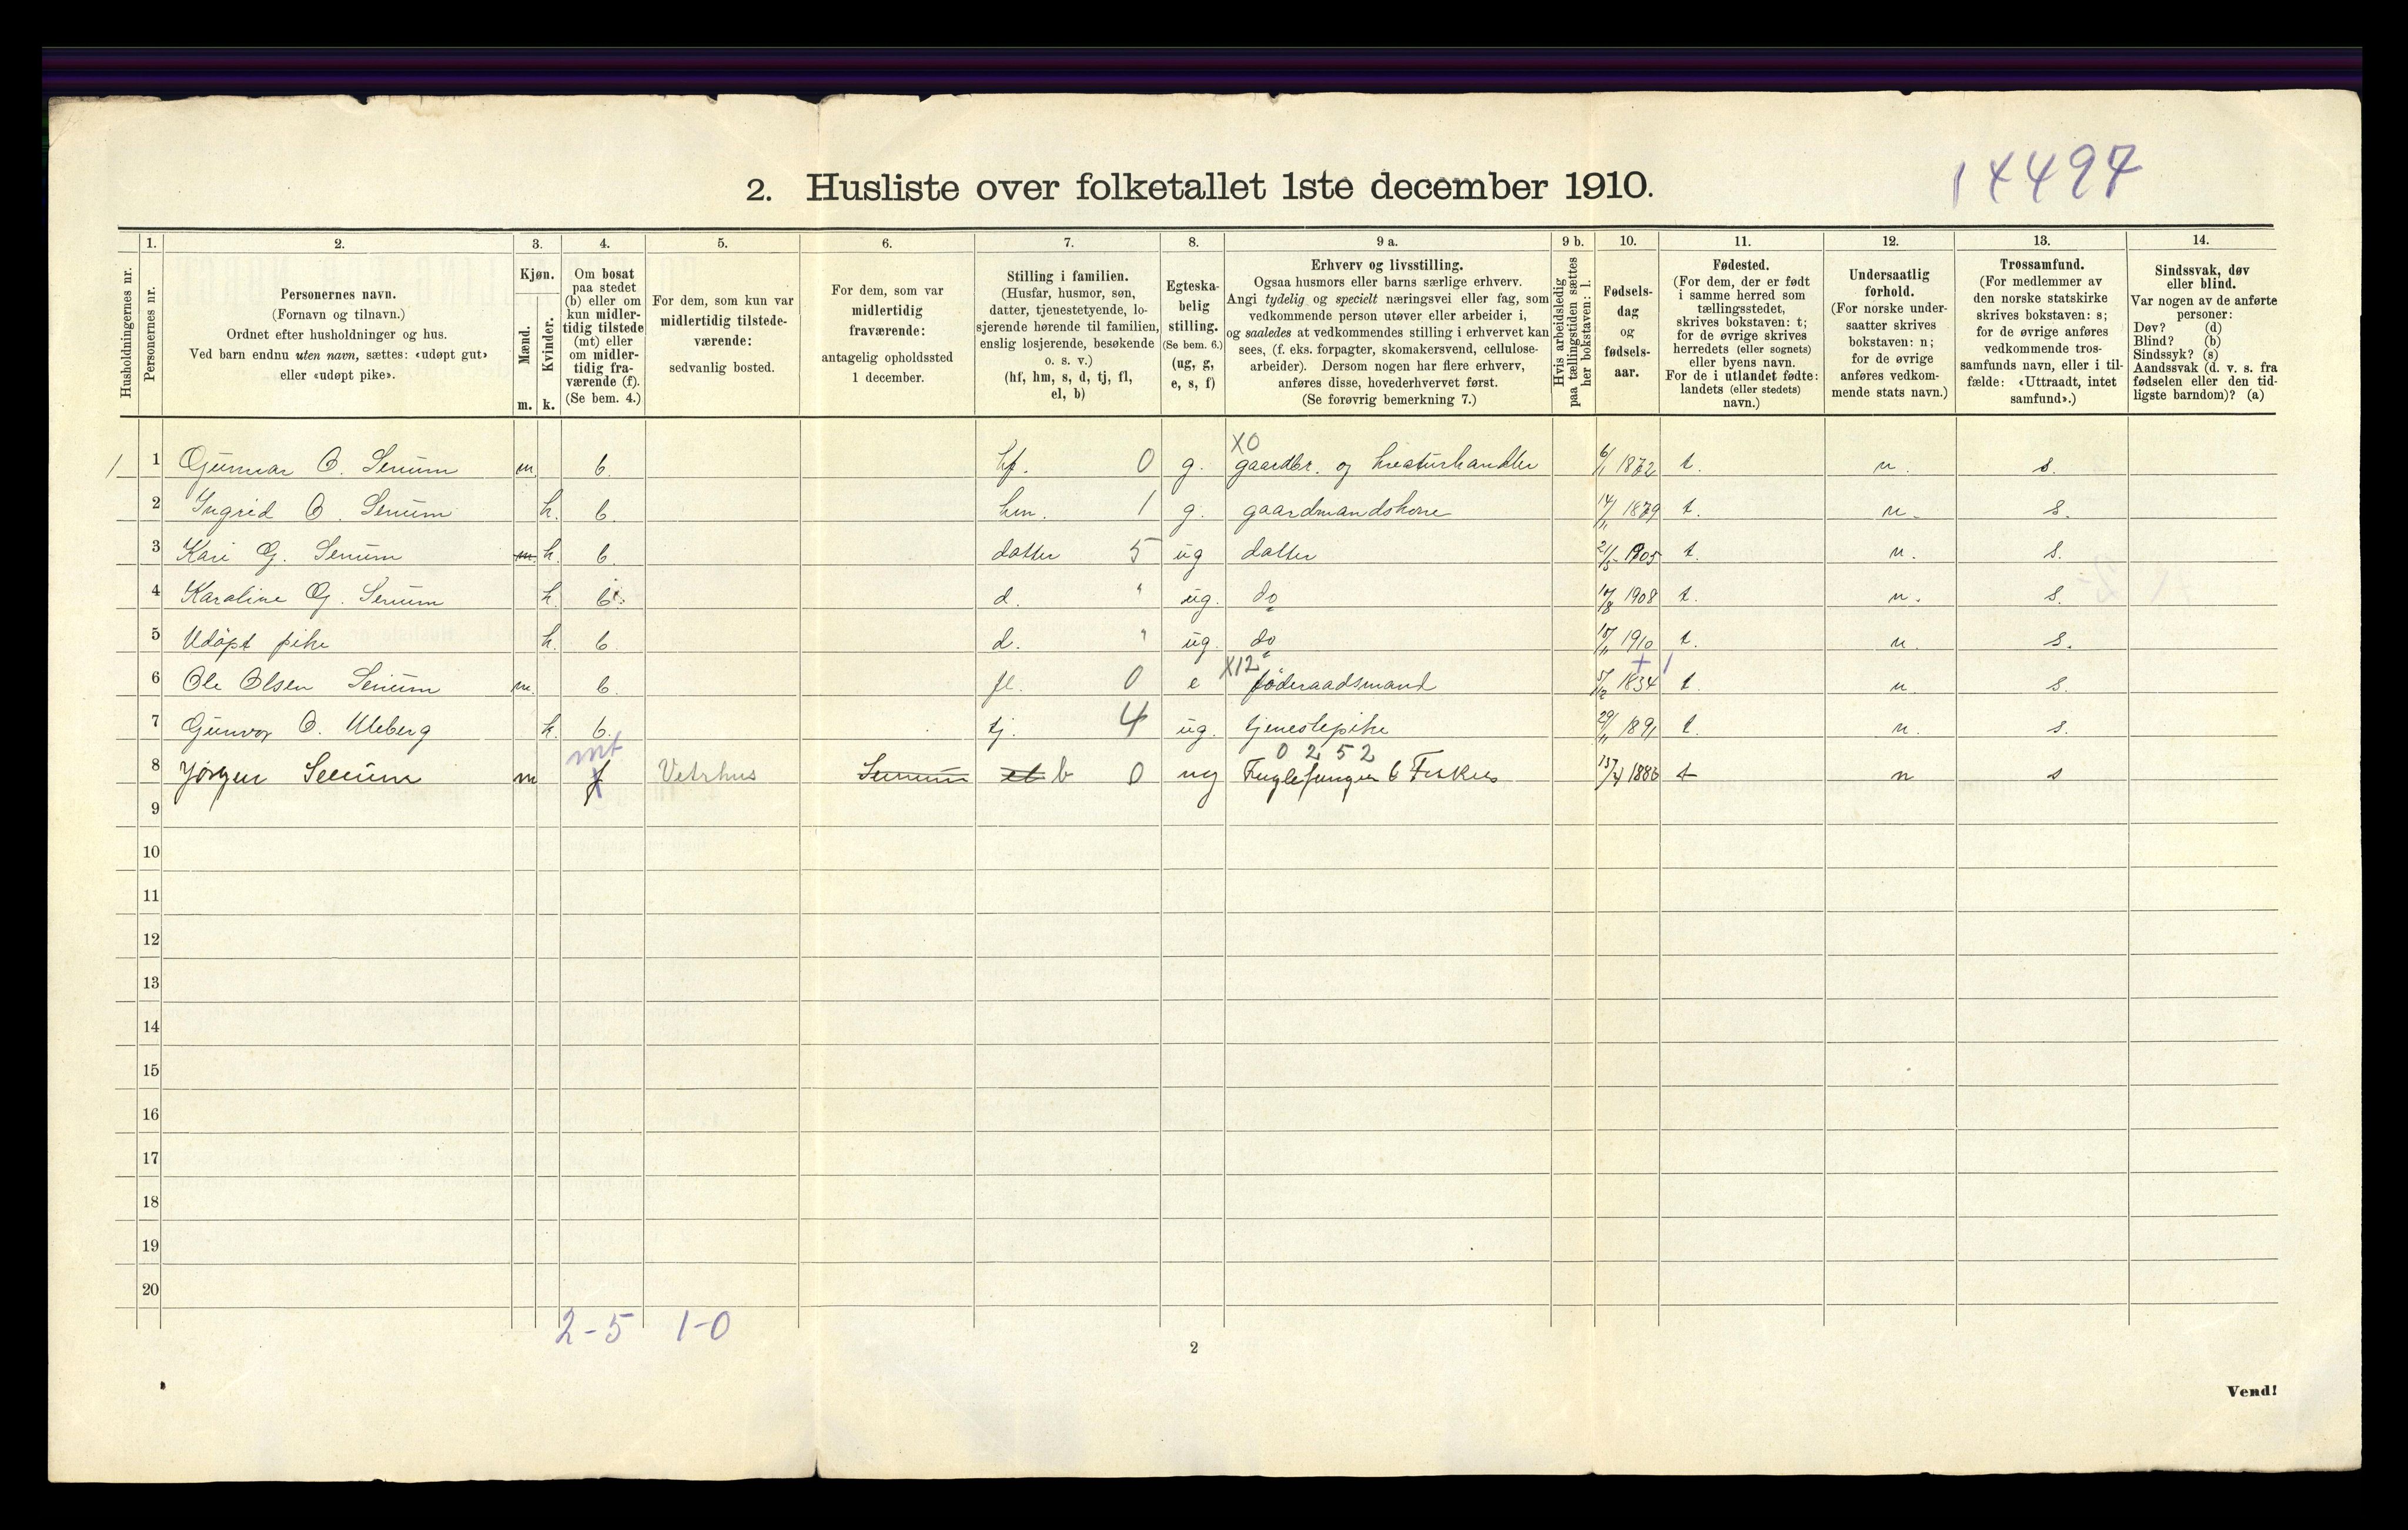 14497
2. Husliste over folketallet 1ste december 1910.
Husholdningernes nr.
1.
Personernes nr.
2.
Personernes navn.
(Fornavn og tilnavn.)
Ordnet efter husholdninger og hus.
Ved barn endnu uten navn, sættes: «udøpt gut»
eller «udøpt pike».
3.
Kjøn.
Mænd.
Kvinder.
m. k.
4.
Om bosat
paa stedet
(b) eller om
kun midler-
tidig tilstede
(mt) eller
om midler-
tidig fra-
værende (f).
(Se bem. 4.)
5.
For dem, som kun var
midlertidig tilstede-
værende:
sedvanlig bosted.
6.
For dem, som var
midlertidig
fraværende:
antagelig opholdssted
1 december.
7.
Stilling i familien.
(Husfar, husmor, søn,
datter, tjenestetyende, lo-
sjerende hørende til familien,
enslig losjerende, besøkende
o. s. v.)
(hf, hm, s, d, tj, fl,
el, b)
8.
Egteska-
belig
stilling.
(Se bem. 6.)
(ug, g,
e, s, f)
9 a.
Erhverv og livsstilling.
Ogsaa husmors eller barns særlige erhverv.
Angi tydelig og specielt næringsvei eller fag, som
vedkommende person utøver eller arbeider i,
og saaledes at vedkommendes stilling i erhvervet kan
sees, (f. eks. forpagter, skomakersvend, cellulose-
arbeider). Dersom nogen har flere erhverv,
anføres disse, hovederhvervet først.
(Se forøvrig bemerkning 7.)
9 b.
Hvis arbeidsledig
paa tællingstiden sættes
her bokstaven: l.
10.
Fødsels-
dag
og
fødsels-
aar.
11.
Fødested.
(For dem, der er født
i samme herred som
tællingsstedet,
skrives bokstaven: t;
for de øvrige skrives
herredets (eller sognets)
eller byens navn.
For de i utlandet fødte:
landets (eller stedets)
navn.)
12.
Undersaatlig
forhold.
(For norske under-
saatter skrives
bokstaven: n;
for de øvrige
anføres vedkom-
mende stats navn.)
13.
Trossamfund.
(For medlemmer av
den norske statskirke
skrives bokstaven: s;
for de øvrige anføres
vedkommende tros-
samfunds navn, eller i til-
fælde: «Uttraadt, intet
samfund».)
14.
Sindssvak, døv
eller blind.
Var nogen av de anførte
personer:
Døv? (d)
Blind? (b)
Sindssyk? (s)
Aandssvak (d. v. s. fra
fødselen eller den tid-
ligste barndom)? (a)
X0
1 1 Gunnar O. Senum m. b. hf. 0 g. gaardbr. og kreaturhandler 6/1 1872 t. n. s.
2 Ingrid O. Senum k. b. hm. 1 g. gaardmandskone 14/11 1879 t. n. s.
3 Kari G. Senum m. k. b. datter 5 ug datter 21/5 1905 t. n. s.
4 Karoline G. Senum k. b. d. " ug. do 17/8 1908 t. n. s.
5 Udøpt pike k. b. d. " ug. do 15/11 1910 t. n. s.
X12 + 1
6 Ole Olsen Senum m. b. fl. 0 e føderaadsmand 5/2 1834 t. n. s.
7 Gunvor O. Uleberg k. b. tj. 4 ug. tjenestepike 29/11 1891 t. n. s.
mt 0 252
8 Jørgen Senum m f Vetrhus Senum el b 0 ug Fuglefanger & Fisker 13/4 1886 t n s
9
10
11
12
13
14
15
16
17
18
19
20
2-5 1-0
2
Vend!